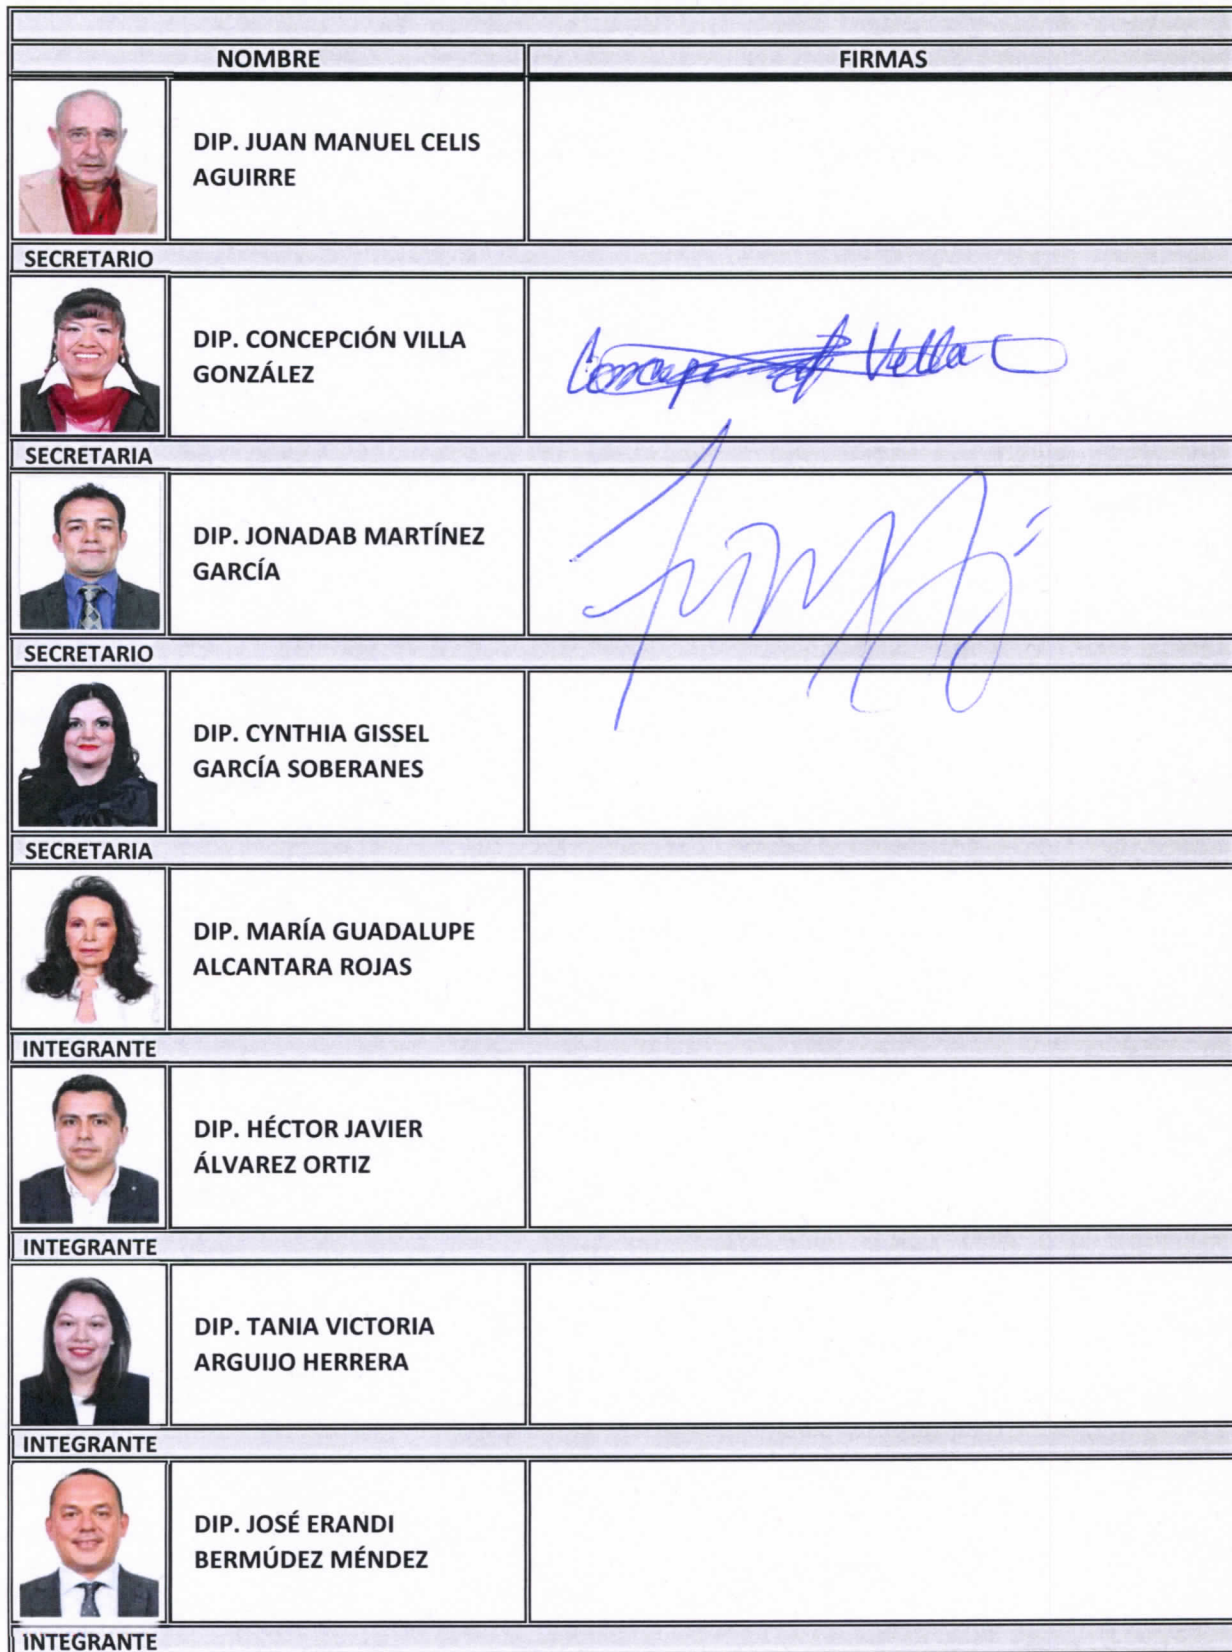 NOMBRE FIRMAS
DIP. JUAN MANUEL CELIS
AGUIRRE
SECRETARIO
DIP. CONCEPCIÓN VILLA
GONZÁLEZ
Villa
SECRETARIA
DIP. JONADAB MARTÍNEZ
GARCÍA
SECRETARIO
DIP. CYNTHIA GISSEL
GARCÍA SOBERANES
SECRETARIA
DIP. MARÍA GUADALUPE
ALCANTARA ROJAS
INTEGRANTE
DIP. HÉCTOR JAVIER
ÁLVAREZ ORTIZ
INTEGRANTE
DIP. TANIA VICTORIA
ARGUIJO HERRERA
INTEGRANTE
DIP. JOSÉ ERANDI
BERMÚDEZ MÉNDEZ
INTEGRANTE